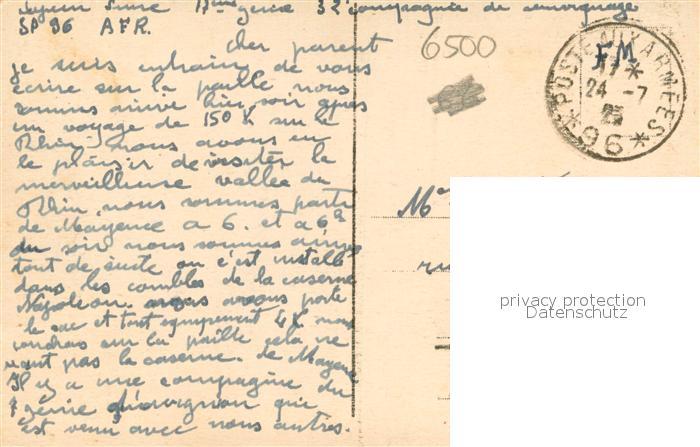 génie 32 compagnie de remorquage
SP 96 AFR.
Cher parent
je suis entrain de vous
ecrire sur la paille nous
sommes arrivé hier soir apres
un voyage de 150 K sur le
Rhin. nous avons eu
le plaisir de visiter la
merveilleuse vallée du
Rhin nous sommes parti
de Mayence a 6. et a 6h
du soir nous sommes arrivés
tout de suite on c'est installé
dans les combles de la caserne
Napoleon. nous avons porté
le sac et tout equipement 4 K nous
couchons sur la paille cela ne
vaut pas la caserne de Mayence
Il y a une compagnie du
7 genie d'avignon qui
est venu avec nous autres.
6500
FM
*POSTE AUX ARMÉES*
17 *
24 -7
25
*96*
Me
ru
privacy protection
Datenschutz